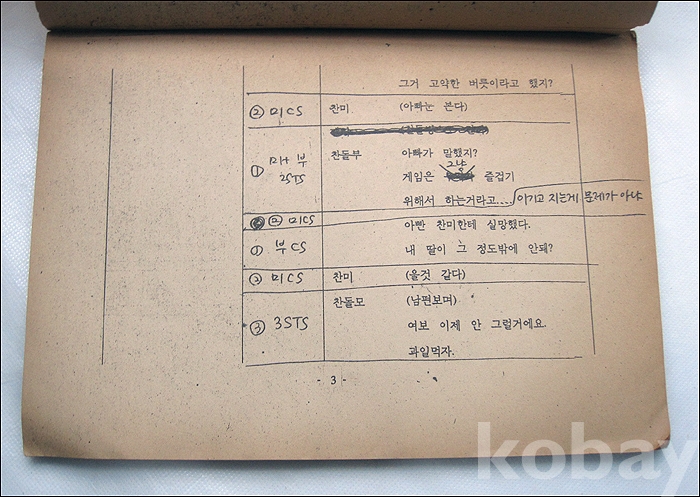 그거 고약한 버릇이라고 했지?
② 미CS 찬미 (아빠눈 본다)
찬돌부 아빠가 말했지?
① 부
2STS
그냥
게임은 즐겁기
위해서 하는거라고.... 이기고 지는게 문제가 아냐
② 미CS 아빤 찬미한테 실망했다.
① 부CS 내 딸이 그 정도밖에 안돼?
② 미CS 찬미 (울것 같다)
찬돌모 (남편보며)
③ 3STS 여보 이제 안 그럴거에요.
과일먹자.
- 3 -
kobay